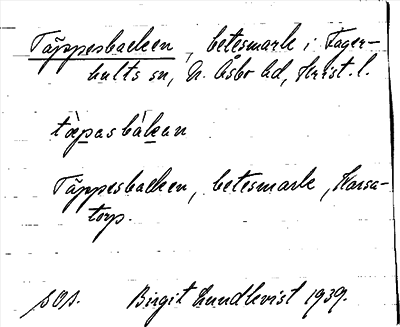 Täppesbacken, betesmark i Fager-
hults sn, N. Åsbo hd, Krist. l.
tæ̀pasbákan
Täppesbacken, betesmark, Karsa-
torp.
Birgit Lundkvist 1939.